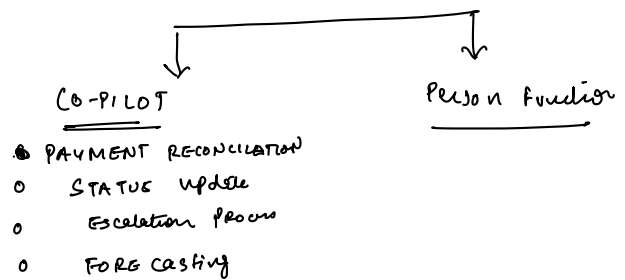 CO-PILOT
Person Function
PAYMENT RECONCILATION
STATUS update
Escalation Process
FORE casting